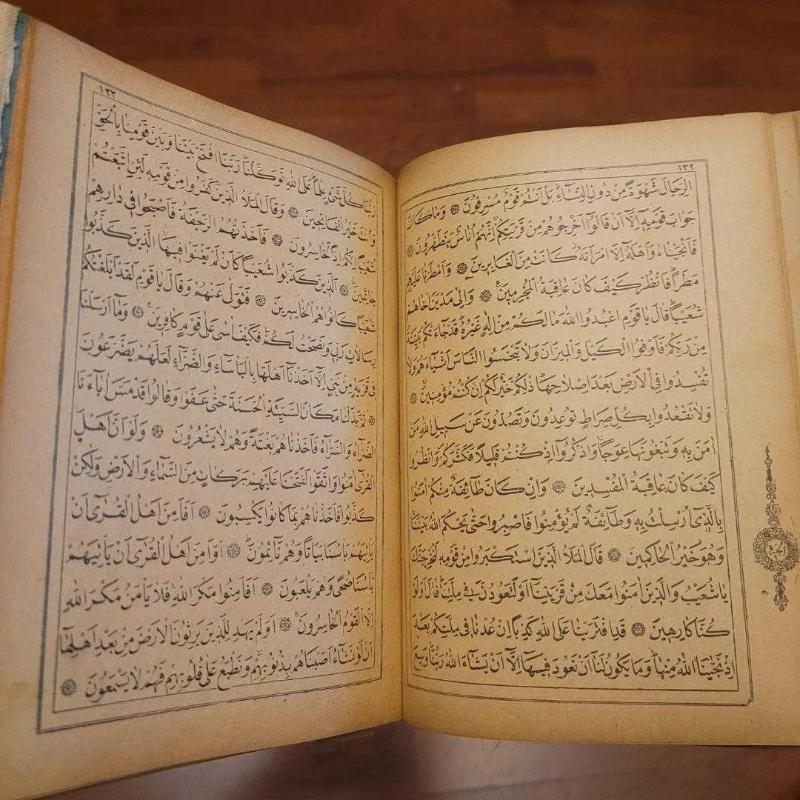 ١٣٢
الرِّجَالَ شَهْوَةً مِنْ دُونِ النِّسَاءِ بَلْ اَنْتُمْ قَوْمٌ مُسْرِفُونَ ۞ وَمَا كَانَ
جَوَابَ قَوْمِهِ اِلَّا اَنْ قَالُوا اَخْرِجُوهُمْ مِنْ قَرْيَتِكُمْ اِنَّهُمْ اُنَاسٌ يَتَطَهَّرُونَ ۞
فَاَنْجَيْنَاهُ وَاَهْلَهُ اِلَّا امْرَاَتَهُ كَانَتْ مِنَ الْغَابِرِينَ ۞ وَاَمْطَرْنَا عَلَيْهِمْ
مَطَرًا فَانْظُرْ كَيْفَ كَانَ عَاقِبَةُ الْمُجْرِمِينَ ۞ وَاِلٰى مَدْيَنَ اَخَاهُمْ
شُعَيْبًا قَالَ يَا قَوْمِ اعْبُدُوا اللّٰهَ مَا لَكُمْ مِنْ اِلٰهٍ غَيْرُهُ قَدْ جَاءَتْكُمْ بَيِّنَةٌ
مِنْ رَبِّكُمْ فَاَوْفُوا الْكَيْلَ وَالْمِيزَانَ وَلَا تَبْخَسُوا النَّاسَ اَشْيَاءَهُمْ وَلَا
تُفْسِدُوا فِي الْاَرْضِ بَعْدَ اِصْلَاحِهَا ذٰلِكُمْ خَيْرٌ لَكُمْ اِنْ كُنْتُمْ مُؤْمِنِينَ ۞
وَلَا تَقْعُدُوا بِكُلِّ صِرَاطٍ تُوعِدُونَ وَتَصُدُّونَ عَنْ سَبِيلِ اللّٰهِ مَنْ
اٰمَنَ بِهِ وَتَبْغُونَهَا عِوَجًا وَاذْكُرُوا اِذْ كُنْتُمْ قَلِيلًا فَكَثَّرَكُمْ وَانْظُرُوا
كَيْفَ كَانَ عَاقِبَةُ الْمُفْسِدِينَ ۞ وَاِنْ كَانَ طَائِفَةٌ مِنْكُمْ اٰمَنُوا
بِالَّذِي اُرْسِلْتُ بِهِ وَطَائِفَةٌ لَمْ يُؤْمِنُوا فَاصْبِرُوا حَتّٰى يَحْكُمَ اللّٰهُ بَيْنَنَا
وَهُوَ خَيْرُ الْحَاكِمِينَ ۞ قَالَ الْمَلَاُ الَّذِينَ اسْتَكْبَرُوا مِنْ قَوْمِهِ لَنُخْرِجَنَّكَ
يَا شُعَيْبُ وَالَّذِينَ اٰمَنُوا مَعَكَ مِنْ قَرْيَتِنَا اَوْ لَتَعُودُنَّ فِي مِلَّتِنَا قَالَ اَوَلَوْ
كُنَّا كَارِهِينَ ۞ قَدِ افْتَرَيْنَا عَلَى اللّٰهِ كَذِبًا اِنْ عُدْنَا فِي مِلَّتِكُمْ بَعْدَ
اِذْ نَجّٰينَا اللّٰهُ مِنْهَا وَمَا يَكُونُ لَنَا اَنْ نَعُودَ فِيهَا اِلَّا اَنْ يَشَاءَ اللّٰهُ رَبُّنَا وَسِعَ
١٣٣
رَبُّنَا كُلَّ شَيْءٍ عِلْمًا عَلَى اللّٰهِ تَوَكَّلْنَا رَبَّنَا افْتَحْ بَيْنَنَا وَبَيْنَ قَوْمِنَا بِالْحَقِّ
وَاَنْتَ خَيْرُ الْفَاتِحِينَ ۞ وَقَالَ الْمَلَاُ الَّذِينَ كَفَرُوا مِنْ قَوْمِهِ لَئِنِ اتَّبَعْتُمْ
شُعَيْبًا اِنَّكُمْ اِذًا لَخَاسِرُونَ ۞ فَاَخَذَتْهُمُ الرَّجْفَةُ فَاَصْبَحُوا فِي دَارِهِمْ
جَاثِمِينَ ۞ الَّذِينَ كَذَّبُوا شُعَيْبًا كَاَنْ لَمْ يَغْنَوْا فِيهَا الَّذِينَ كَذَّبُوا
شُعَيْبًا كَانُوا هُمُ الْخَاسِرِينَ ۞ فَتَوَلّٰى عَنْهُمْ وَقَالَ يَا قَوْمِ لَقَدْ اَبْلَغْتُكُمْ
رِسَالَاتِ رَبِّي وَنَصَحْتُ لَكُمْ فَكَيْفَ اٰسٰى عَلٰى قَوْمٍ كَافِرِينَ ۞ وَمَا اَرْسَلْنَا
فِي قَرْيَةٍ مِنْ نَبِيٍّ اِلَّا اَخَذْنَا اَهْلَهَا بِالْبَأْسَاءِ وَالضَّرَّاءِ لَعَلَّهُمْ يَضَّرَّعُونَ
۞ ثُمَّ بَدَّلْنَا مَكَانَ السَّيِّئَةِ الْحَسَنَةَ حَتّٰى عَفَوْا وَقَالُوا قَدْ مَسَّ اٰبَاءَنَا
الضَّرَّاءُ وَالسَّرَّاءُ فَاَخَذْنَاهُمْ بَغْتَةً وَهُمْ لَا يَشْعُرُونَ ۞ وَلَوْ اَنَّ اَهْلَ
الْقُرٰى اٰمَنُوا وَاتَّقَوْا لَفَتَحْنَا عَلَيْهِمْ بَرَكَاتٍ مِنَ السَّمَاءِ وَالْاَرْضِ وَلٰكِنْ
كَذَّبُوا فَاَخَذْنَاهُمْ بِمَا كَانُوا يَكْسِبُونَ ۞ اَفَاَمِنَ اَهْلُ الْقُرٰى اَنْ
يَأْتِيَهُمْ بَأْسُنَا بَيَاتًا وَهُمْ نَائِمُونَ ۞ اَوَاَمِنَ اَهْلُ الْقُرٰى اَنْ يَأْتِيَهُمْ
بَأْسُنَا ضُحًى وَهُمْ يَلْعَبُونَ ۞ اَفَاَمِنُوا مَكْرَ اللّٰهِ فَلَا يَأْمَنُ مَكْرَ اللّٰهِ
اِلَّا الْقَوْمُ الْخَاسِرُونَ ۞ اَوَلَمْ يَهْدِ لِلَّذِينَ يَرِثُونَ الْاَرْضَ مِنْ بَعْدِ اَهْلِهَا
اَنْ لَوْ نَشَاءُ اَصَبْنَاهُمْ بِذُنُوبِهِمْ وَنَطْبَعُ عَلٰى قُلُوبِهِمْ فَهُمْ لَا يَسْمَعُونَ ۞